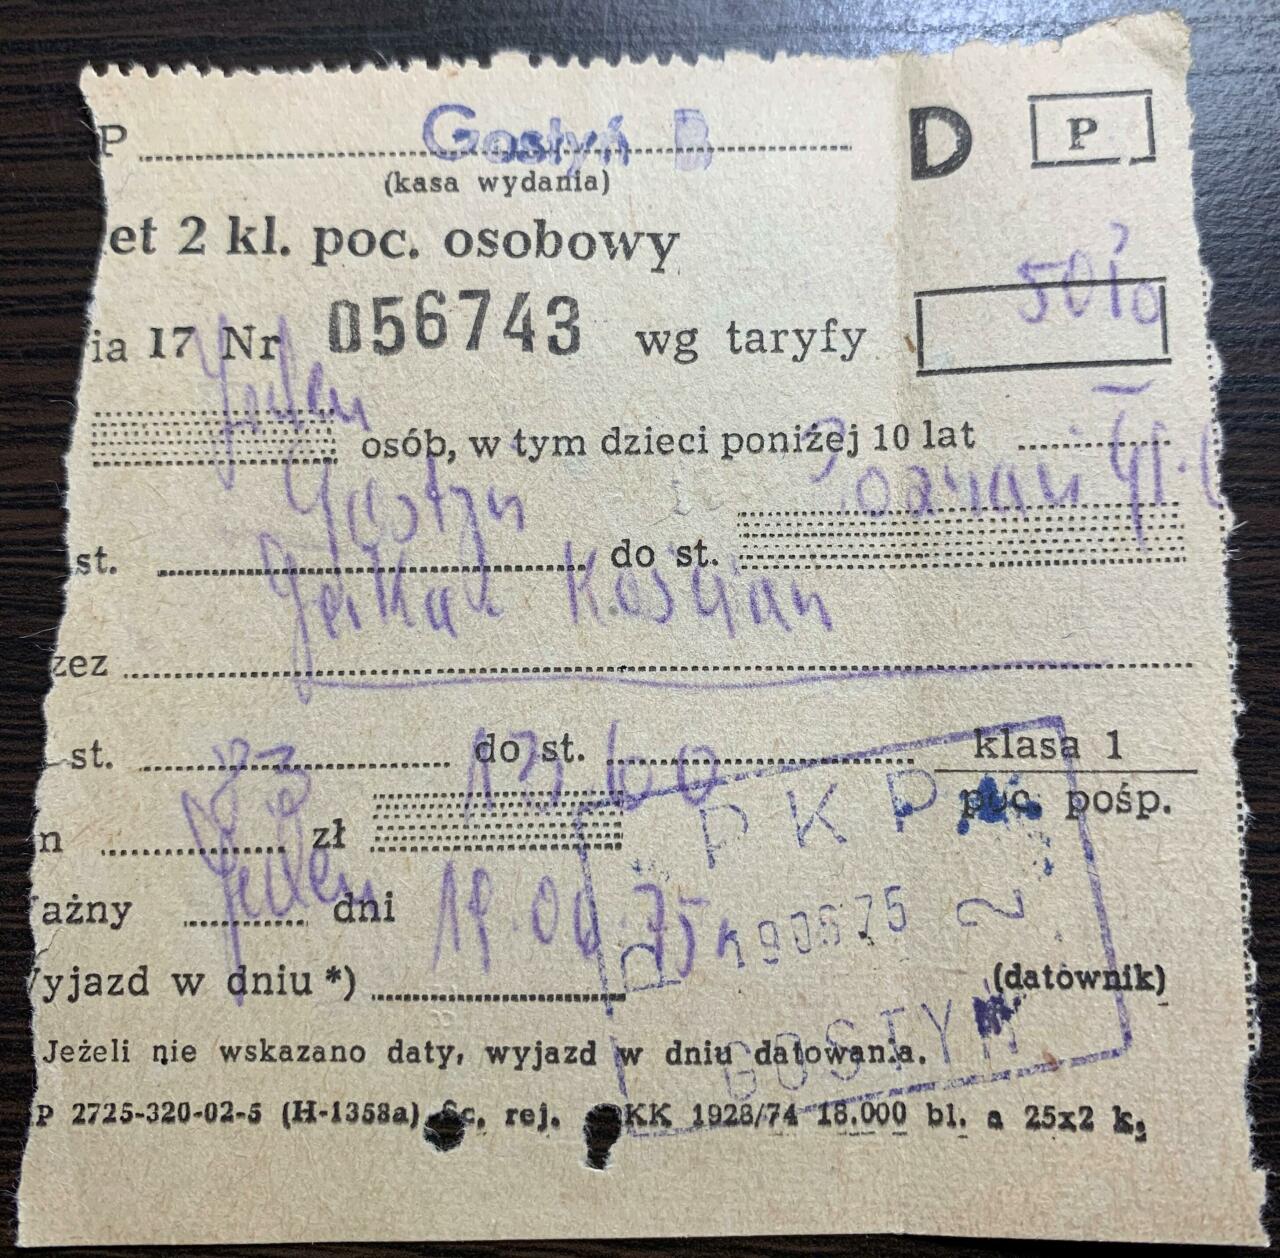 P Gostyń D P
(kasa wydania)
et 2 kl. poc. osobowy
50%
ia 17 Nr 056743 wg taryfy
Jeden
osób, w tym dzieci poniżej 10 lat
Gostyń Poznań Gł.
st. do st.
Kościan
zez
st. do st. klasa 1
83 13,60 P K P poc. pośp.
n zł
Jeden
ażny dni 19.06.75 190675 2
yjazd w dniu *) (datownik)
Jeżeli nie wskazano daty, wyjazd w dniu datowania.
GOSTYŃ
P 2725-320-02-5 (H-1358a) Sc. rej. KK 1928/74 18.000 bl. a 25x2 k.